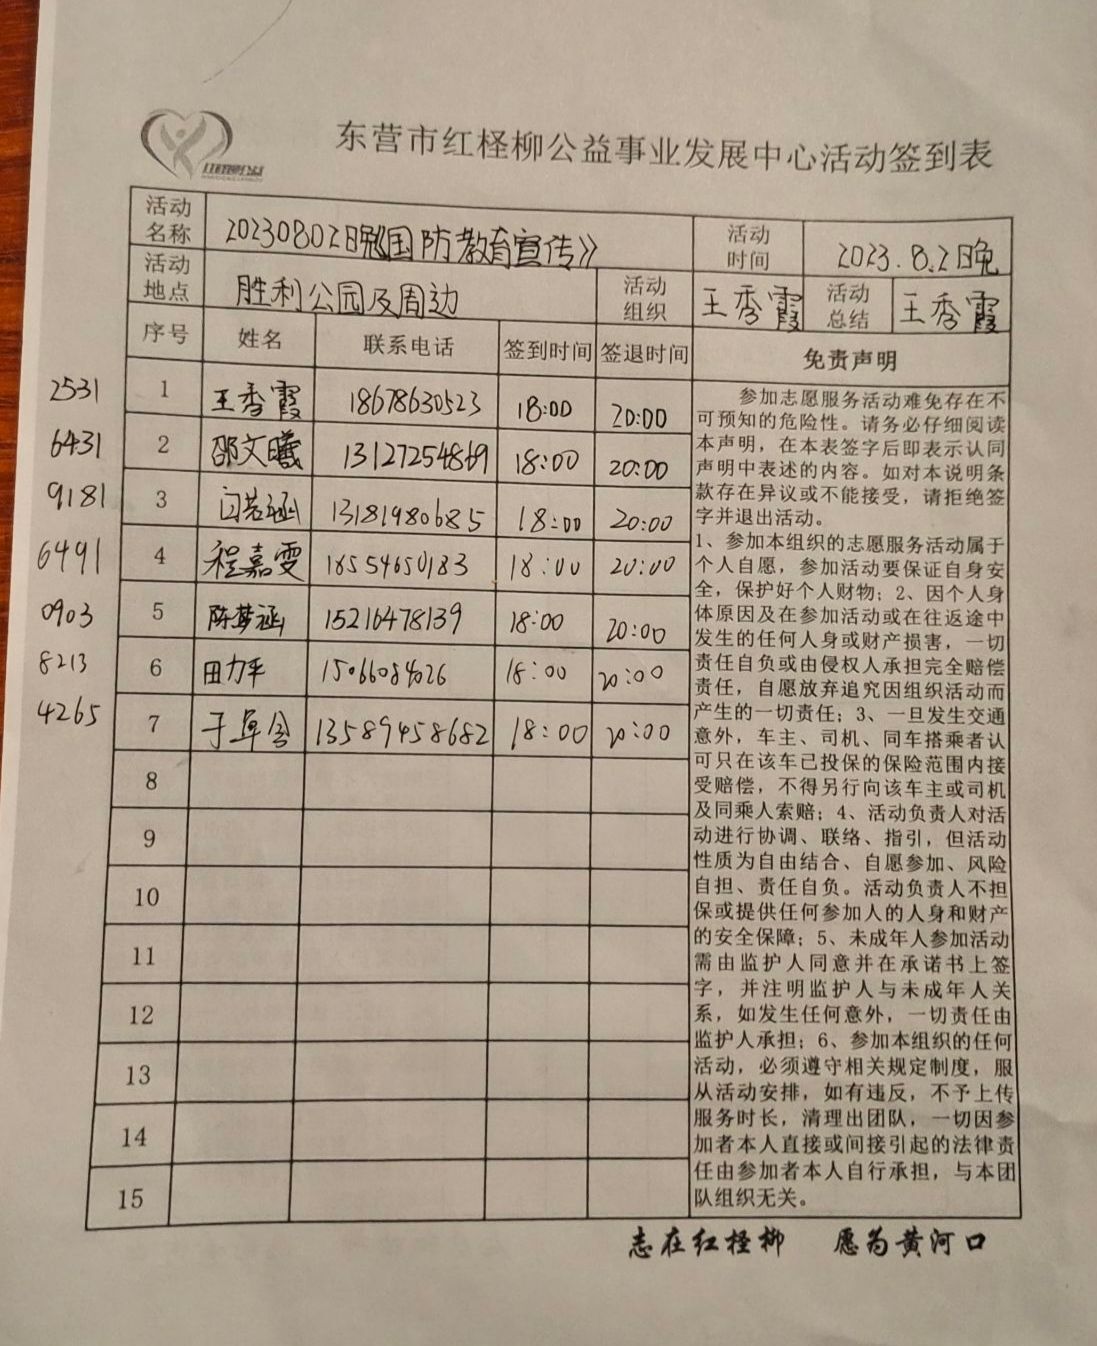 东营市红柽柳公益事业发展中心活动签到表
活动名称 20230802晚《国防教育宣传》 活动时间 2023.8.2日晚
活动地点 胜利公园及周边 活动组织 王秀霞 活动总结 王秀霞
序号 姓名 联系电话 签到时间 签退时间 免责声明
2531 1 王秀霞 18678630523 18:00 20:00
6431 2 邵文曦 13127254869 18:00 20:00
9181 3 闫若涵 13181980685 18:00 20:00
6491 4 程嘉雯 18554650183 18:00 20:00
0903 5 陈梦涵 15216478139 18:00 20:00
8213 6 田力平 15066084026 18:00 20:00
4265 7 于阜舍 13589458682 18:00 20:00
8
9
10
11
12
13
14
15
参加志愿服务活动难免存在不
可预知的危险性。请务必仔细阅读
本声明，在本表签字后即表示认同
声明中表述的内容。如对本说明条
款存在异议或不能接受，请拒绝签
字并退出活动。
1、参加本组织的志愿服务活动属于
个人自愿，参加活动要保证自身安
全，保护好个人财物；2、因个人身
体原因及在参加活动或在往返途中
发生的任何人身或财产损害，一切
责任自负或由侵权人承担完全赔偿
责任，自愿放弃追究因组织活动而
产生的一切责任；3、一旦发生交通
意外，车主、司机、同车搭乘者认
可只在该车已投保的保险范围内接
受赔偿，不得另行向该车主或司机
及同乘人索赔；4、活动负责人对活
动进行协调、联络、指引，但活动
性质为自由结合、自愿参加、风险
自担、责任自负。活动负责人不担
保或提供任何参加人的人身和财产
的安全保障；5、未成年人参加活动
需由监护人同意并在承诺书上签
字，并注明监护人与未成年人关
系，如发生任何意外，一切责任由
监护人承担；6、参加本组织的任何
活动，必须遵守相关规定制度，服
从活动安排，如有违反，不予上传
服务时长，清理出团队，一切因参
加者本人直接或间接引起的法律责
任由参加者本人自行承担，与本团
队组织无关。
志在红柽柳 愿为黄河口